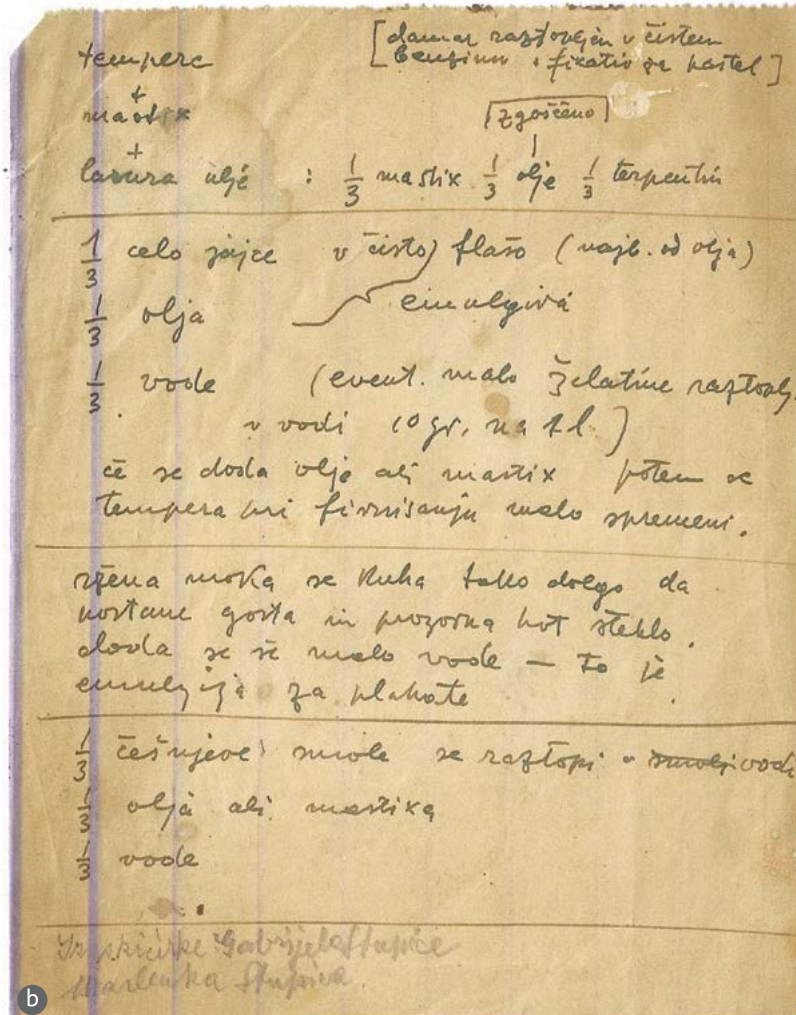 tempere
[damar raztopljen v čistem
bencinu : fixativ za pastel]
+
mastix
[zgoščeno]
+
lasura olje : 1/3 mastix 1/3 olje 1/3 terpentin
1/3 celo jajce v čisto flašo (najb. od olja)
1/3 olja emulgira
1/3 vode (event. malo želatine raztoplj.
v vodi 10 gr. na 1 l.)
če se doda olje ali mastix potem se
tempera pri firnisanju malo spremeni.
ržena moka se kuha tako dolgo da
postane gosta in prozorna kot steklo.
doda se še malo vode — to je
emulzija za plakate
1/3 češnjeve smole se raztopi v smoli vodi
1/3 olja ali mastixa
1/3 vode
Iz skicirke Gabrijela Stupice
Marlenka Stupica
b